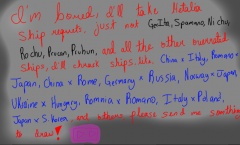 I'm bored, I'll take Hetalia
Ship requests, just not GerIta, Spamano, Nichu,
Rochu, Prucan, Prubun, and all the other overrated
Ships, I'll chose ships like China x Italy, Romano x
Japan, China x Rome, Germany x Russia, Norway x Japan
Ukraine x Hungary, Romania x Romano, Italy x Poland,
Japan x S. korea, and others please send me something
to draw!